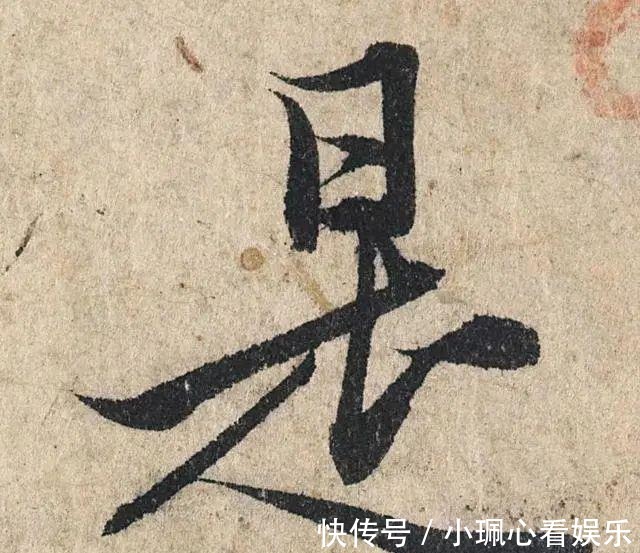 是
快传号 / 小珮心看娱乐